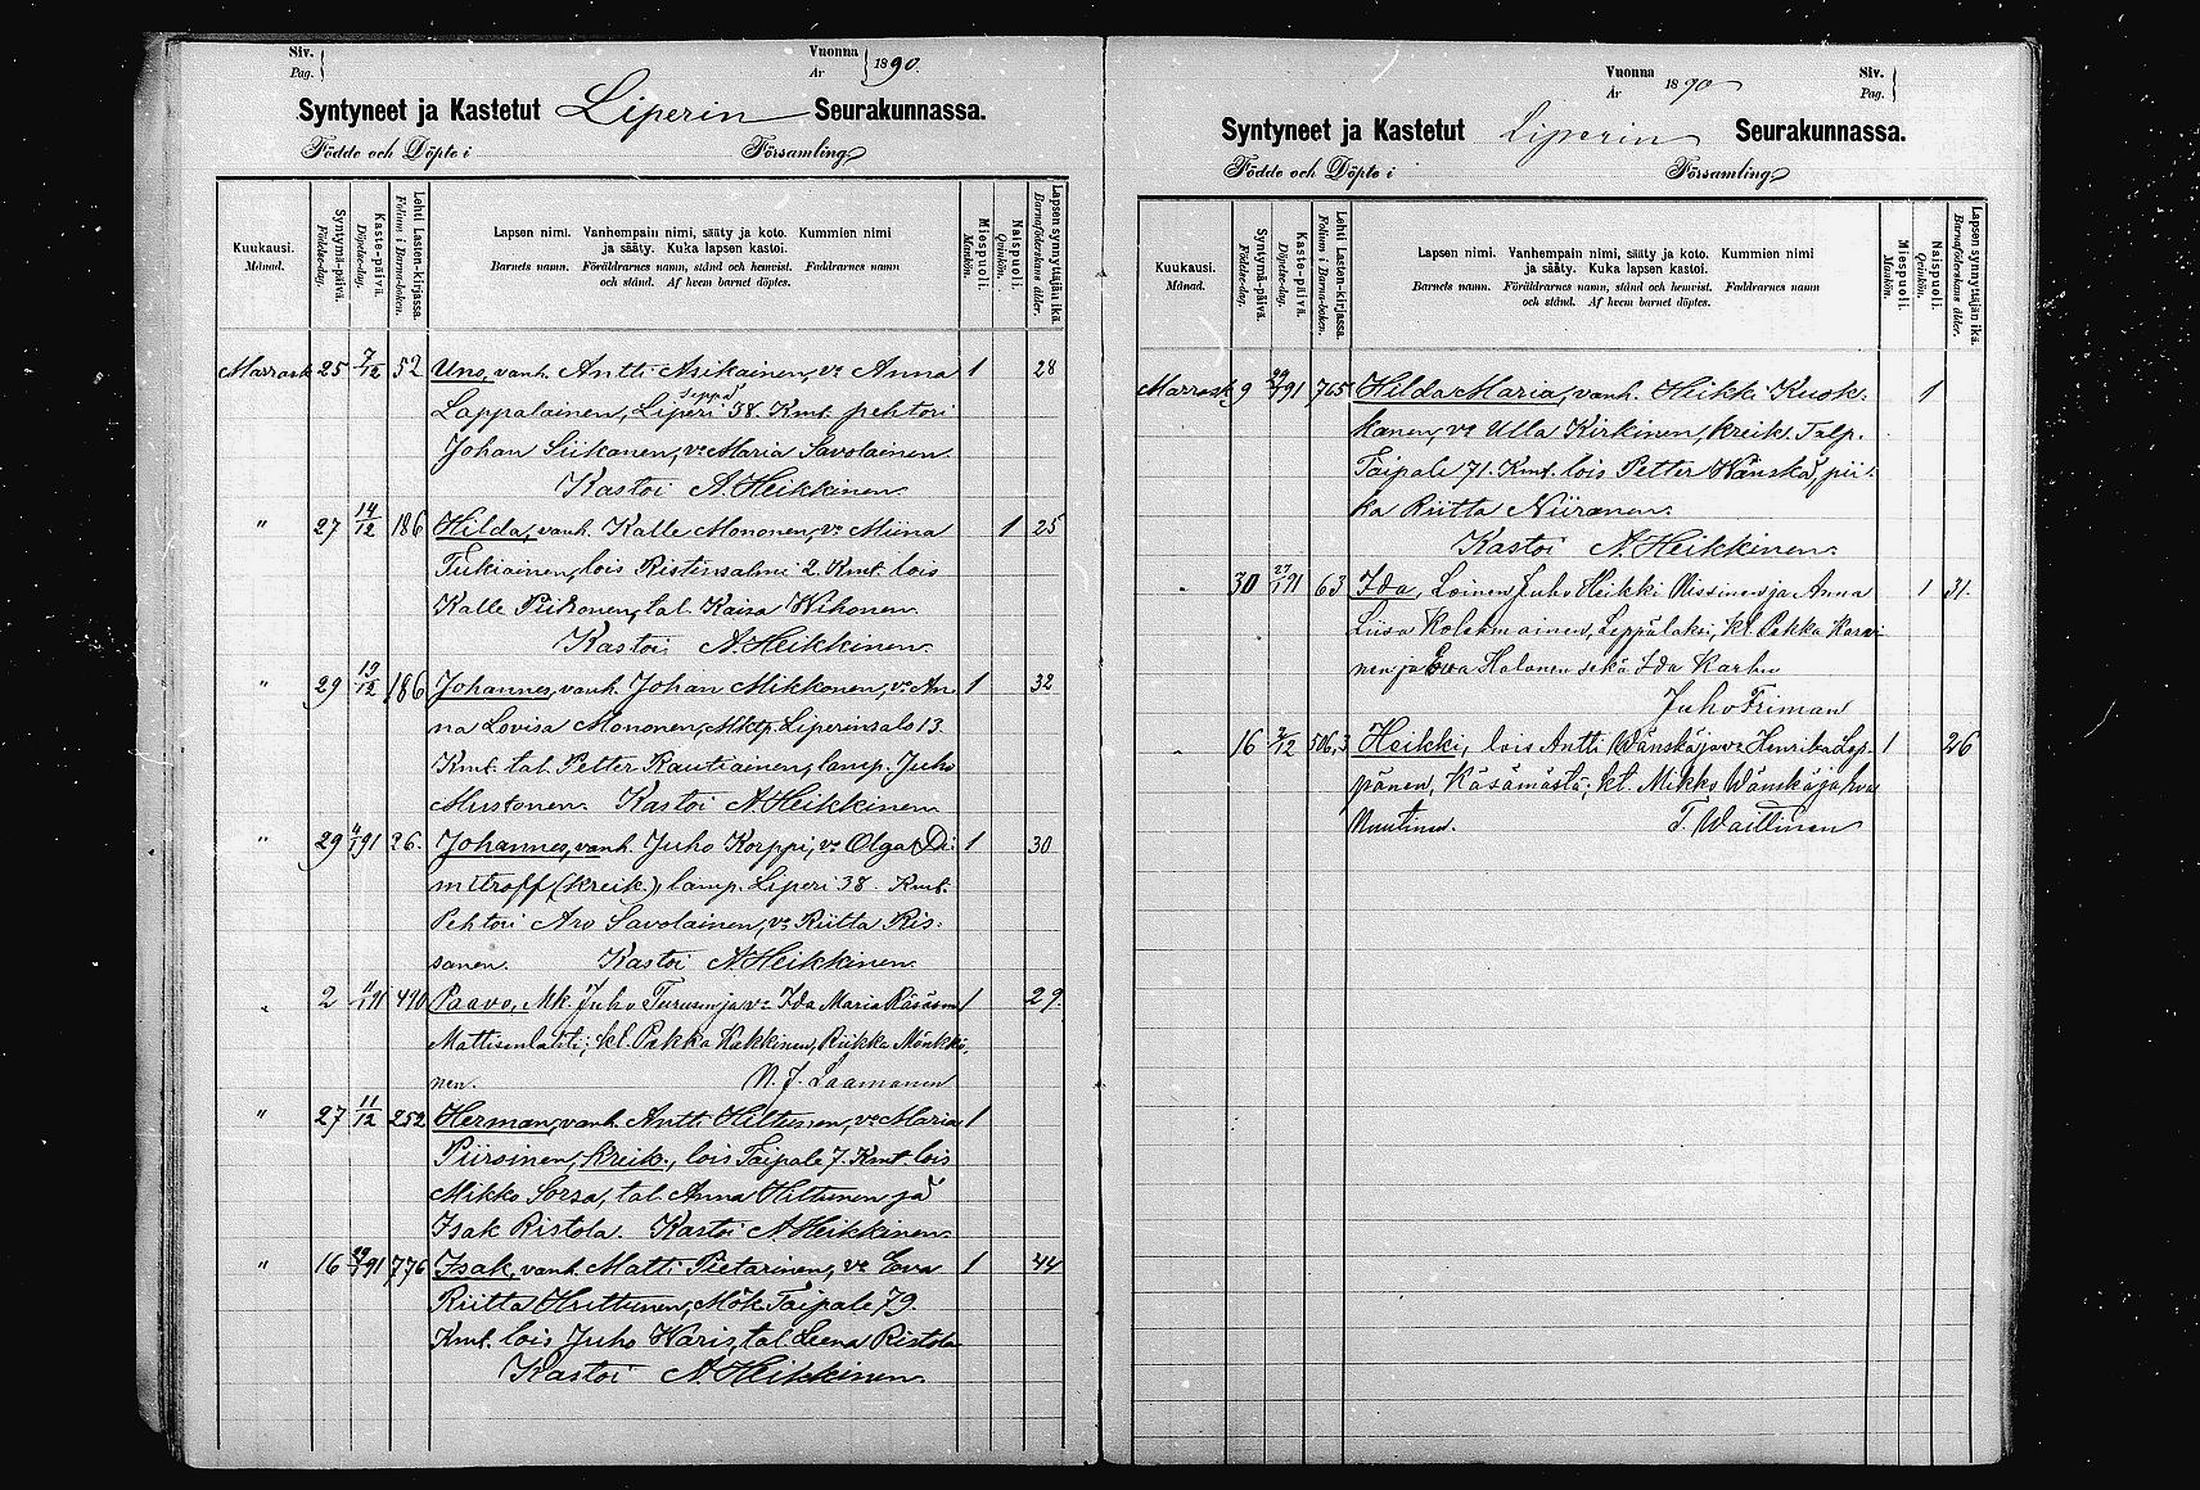 Siv.
Pag.
Vuonna
År
1890.
Syntyneet ja Kastetut Liperin Seurakunnassa.
Födde och Döpte i Församling.
Kuukausi.
Månad.
Syntymä-päivä.
Födelse-dag.
Kaste-päivä.
Döpelse-dag.
Lehti Lasten-kirjassa.
Folium i Barna-boken.
Lapsen nimi. Vanhempain nimi, sääty ja koto. Kummien nimi
ja sääty. Kuka lapsen kastoi.
Barnets namn. Föräldrarnes namn, stånd och hemvist. Faddrarnes namn
och stånd. Af hvem barnet döptes.
Miespuoli.
Mankön.
Naispuoli.
Qvinkön.
Lapsen synnyttäjän ikä.
Barnaföderskans ålder.
Marrask 25 7/12 52 Uno, vanh. Antti Asikainen, vo Anna 1 28
seppä
Lappalainen, Liperi 38. Kmt. pehtori
Johan Siikanen, vo Maria Savolainen.
Kastoi A. Heikkinen.
" 27 14/12 186 Hilda, vanh. Kalle Mononen, vo Miina 1 25
Tukiainen, lois Ristinsalmi 2. Kmt. lois
Kalle Piihonen, tal. Kaisa Wihonen.
Kastoi A. Heikkinen.
" 29 19/12 186 Johannes, vanh. Johan Mikkonen, vo An 1 32
na Lovisa Mononen, Mktp. Liperinsalo 13.
Kmt. tal. Petter Rautiainen, lamp. Juho
Mustonen. Kastoi A. Heikkinen
" 29 4/1 91 26. Johannes, vanh. Juho Korppi, vo Olga Di: 1 30
mitroff (kreik.), lamp. Liperi 38. Kmt.
Pehtori Aro Savolainen, vo Riitta Ris:
sanen. Kastoi A. Heikkinen.
" 2 11/1 91 490 Paavo, Mk. Juho Turusen ja vo Ida Maria Räsäsen 1 29.
Mattisenlahti; kt. Pekka Kakkinen, Riikka Mönkkö,
nen. N. J. Laamanen
" 27 11/12 252 Herman, vanh. Antti Hiltunen, vo Maria 1
Piiroinen, kreik., lois Taipale 7. Kmt. lois
Mikko Sorsa, tal. Anna Hiltunen ja
Isak Ristola. Kastoi A. Heikkinen.
" 16 91 776 Isak, vanh. Matti Pietarinen, vo Eova 1 44
Riitta Huttunen, Mök. Taipale 79.
Kmt. lois Juho Waris, tal. Leena Ristola
Kastoi A. Heikkinen.
Vuonna
År
1890
Siv.
Pag.
Syntyneet ja Kastetut Liperin Seurakunnassa.
Födde och Döpte i Församling.
Kuukausi.
Månad.
Syntymä-päivä.
Födelse-dag.
Kaste-päivä.
Döpelse-dag.
Lehti Lasten-kirjassa.
Folium i Barna-boken.
Lapsen nimi. Vanhempain nimi, sääty ja koto. Kummien nimi
ja sääty. Kuka lapsen kastoi.
Barnets namn. Föräldrarnes namn, stånd och hemvist. Faddrarnes namn
och stånd. Af hvem barnet döptes.
Miespuoli.
Mankön.
Naispuoli.
Qvinkön.
Lapsen synnyttäjän ikä.
Barnaföderskans ålder.
Marrask 9 91 765 Hilda Maria, vanh. Heikki Kuok: 1
kanen, vo Ulla Kirkinen, kreik. Talp.
Taipale 71. Kmt. lois Petter Wänskä, pii:
ka Riitta Niiranen.
Kastoi A. Heikkinen.
" 30 27/1 91 63 Ida, Loinen Juho Heikki Nissinen ja Anna 1 31.
Liisa Kolehmainen, Leppälaksi, kt. Pekka Karvi
nen ja Ewa Halonen sekä Ida Karhu
Juho Friman
" 16 2/12 506,3 Heikki, lois Antti Wänskä ja vo Henrika Lep- 1 26
pänen, Käsämästä; kt. Mikko Wänskä ja Eva
Nuutinen. T. Waittinen